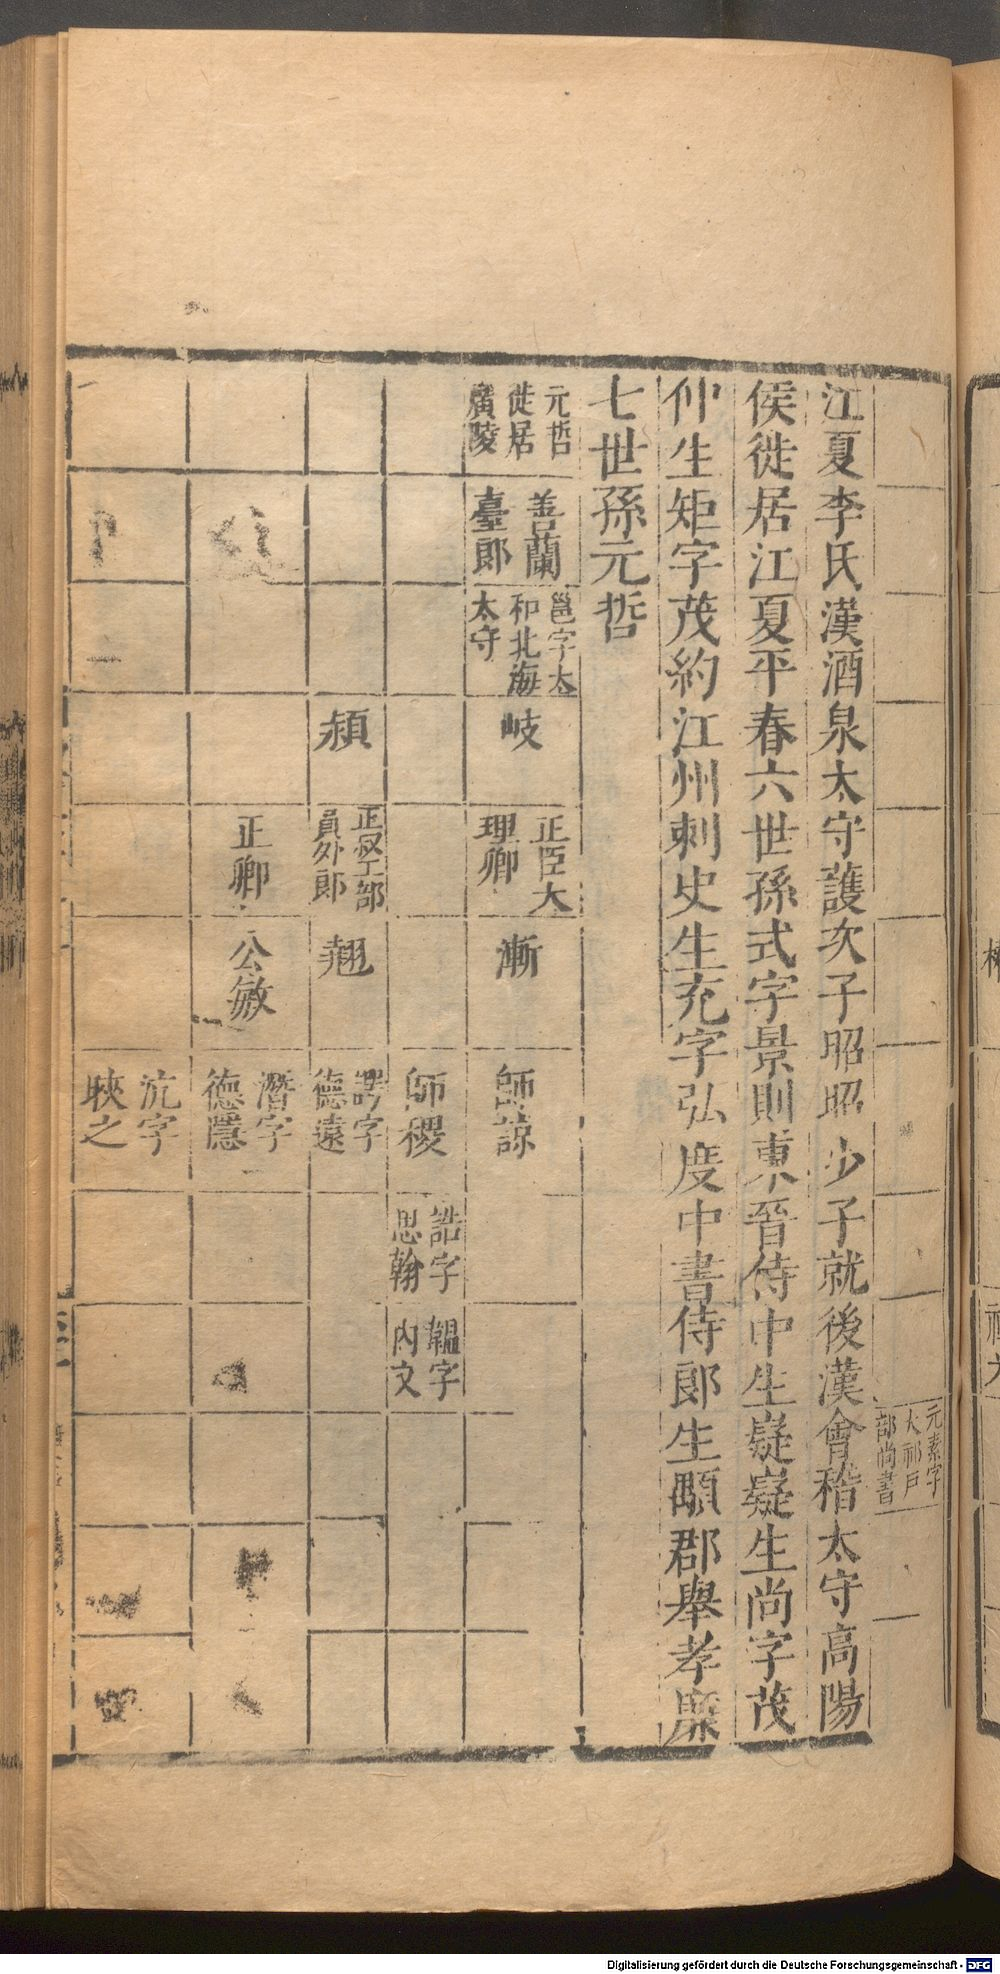 元素字
大祁戶
部尚書
江夏李氏漢酒泉太守護次子昭昭少子就後漢會稽太守高陽
侯徙居江夏平春六世孫式字景則東晉侍中生嶷嶷生尚字茂
仲生矩字茂約江州刺史生充字弘度中書侍郎生顒郡舉孝廉
七世孫元哲
元哲
徙居
廣陵
善蘭
臺郎
邕字太
和北海
太守
岐
正臣大
理卿
漸
師諒
師稷
誥字
思翰
韞字
內文
頳
正叔工部
員外郎
翹
諤字
德遠
正卿
公敏
潛字
德隱
沆字
映之
Digitalisierung gefördert durch die Deutsche Forschungsgemeinschaft - DFG